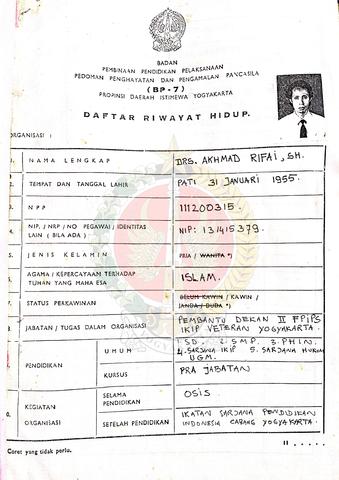 BADAN
PEMBINAAN PENDIDIKAN PELAKSANAAN
PEDOMAN PENGHAYATAN DAN PENGAMALAN PANCASILA
(BP-7)
PROPINSI DAERAH ISTIMEWA YOGYAKARTA
DAFTAR RIWAYAT HIDUP.
ORGANISASI :
1. NAMA LENGKAP DRS. AKHMAD RIFAI, SH.
2. TEMPAT DAN TANGGAL LAHIR PATI 31 JANUARI 1955.
3. NPP 111200315.
4. NIP. / NRP / NO PEGAWAI / IDENTITAS
LAIN ( BILA ADA ) NIP: 131415379.
5. JENIS KELAMIN PRIA / WANITA *)
6. AGAMA / KEPERCAYAAN TERHADAP
TUHAN YANG MAHA ESA ISLAM.
7. STATUS PERKAWINAN BELUM KAWIN / KAWIN /
JANDA / DUDA *)
8. JABATAN / TUGAS DALAM ORGANISASI PEMBANTU DEKAN II FPIPS
IKIP VETERAN YOGYAKARTA.
PENDIDIKAN UMUM 1. SD. 2. SMP. 3. PHIN.
4. SARJANA IKIP 5. SARJANA HUKUM
UGM.
KURSUS PRA JABATAN
KEGIATAN
ORGANISASI
SELAMA
PENDIDIKAN OSIS
SETELAH PENDIDIKAN IKATAN SARJANA PENDIDIKAN
INDONESIA CABANG YOGYAKARTA.
II . . . . .
Coret yang tidak perlu.